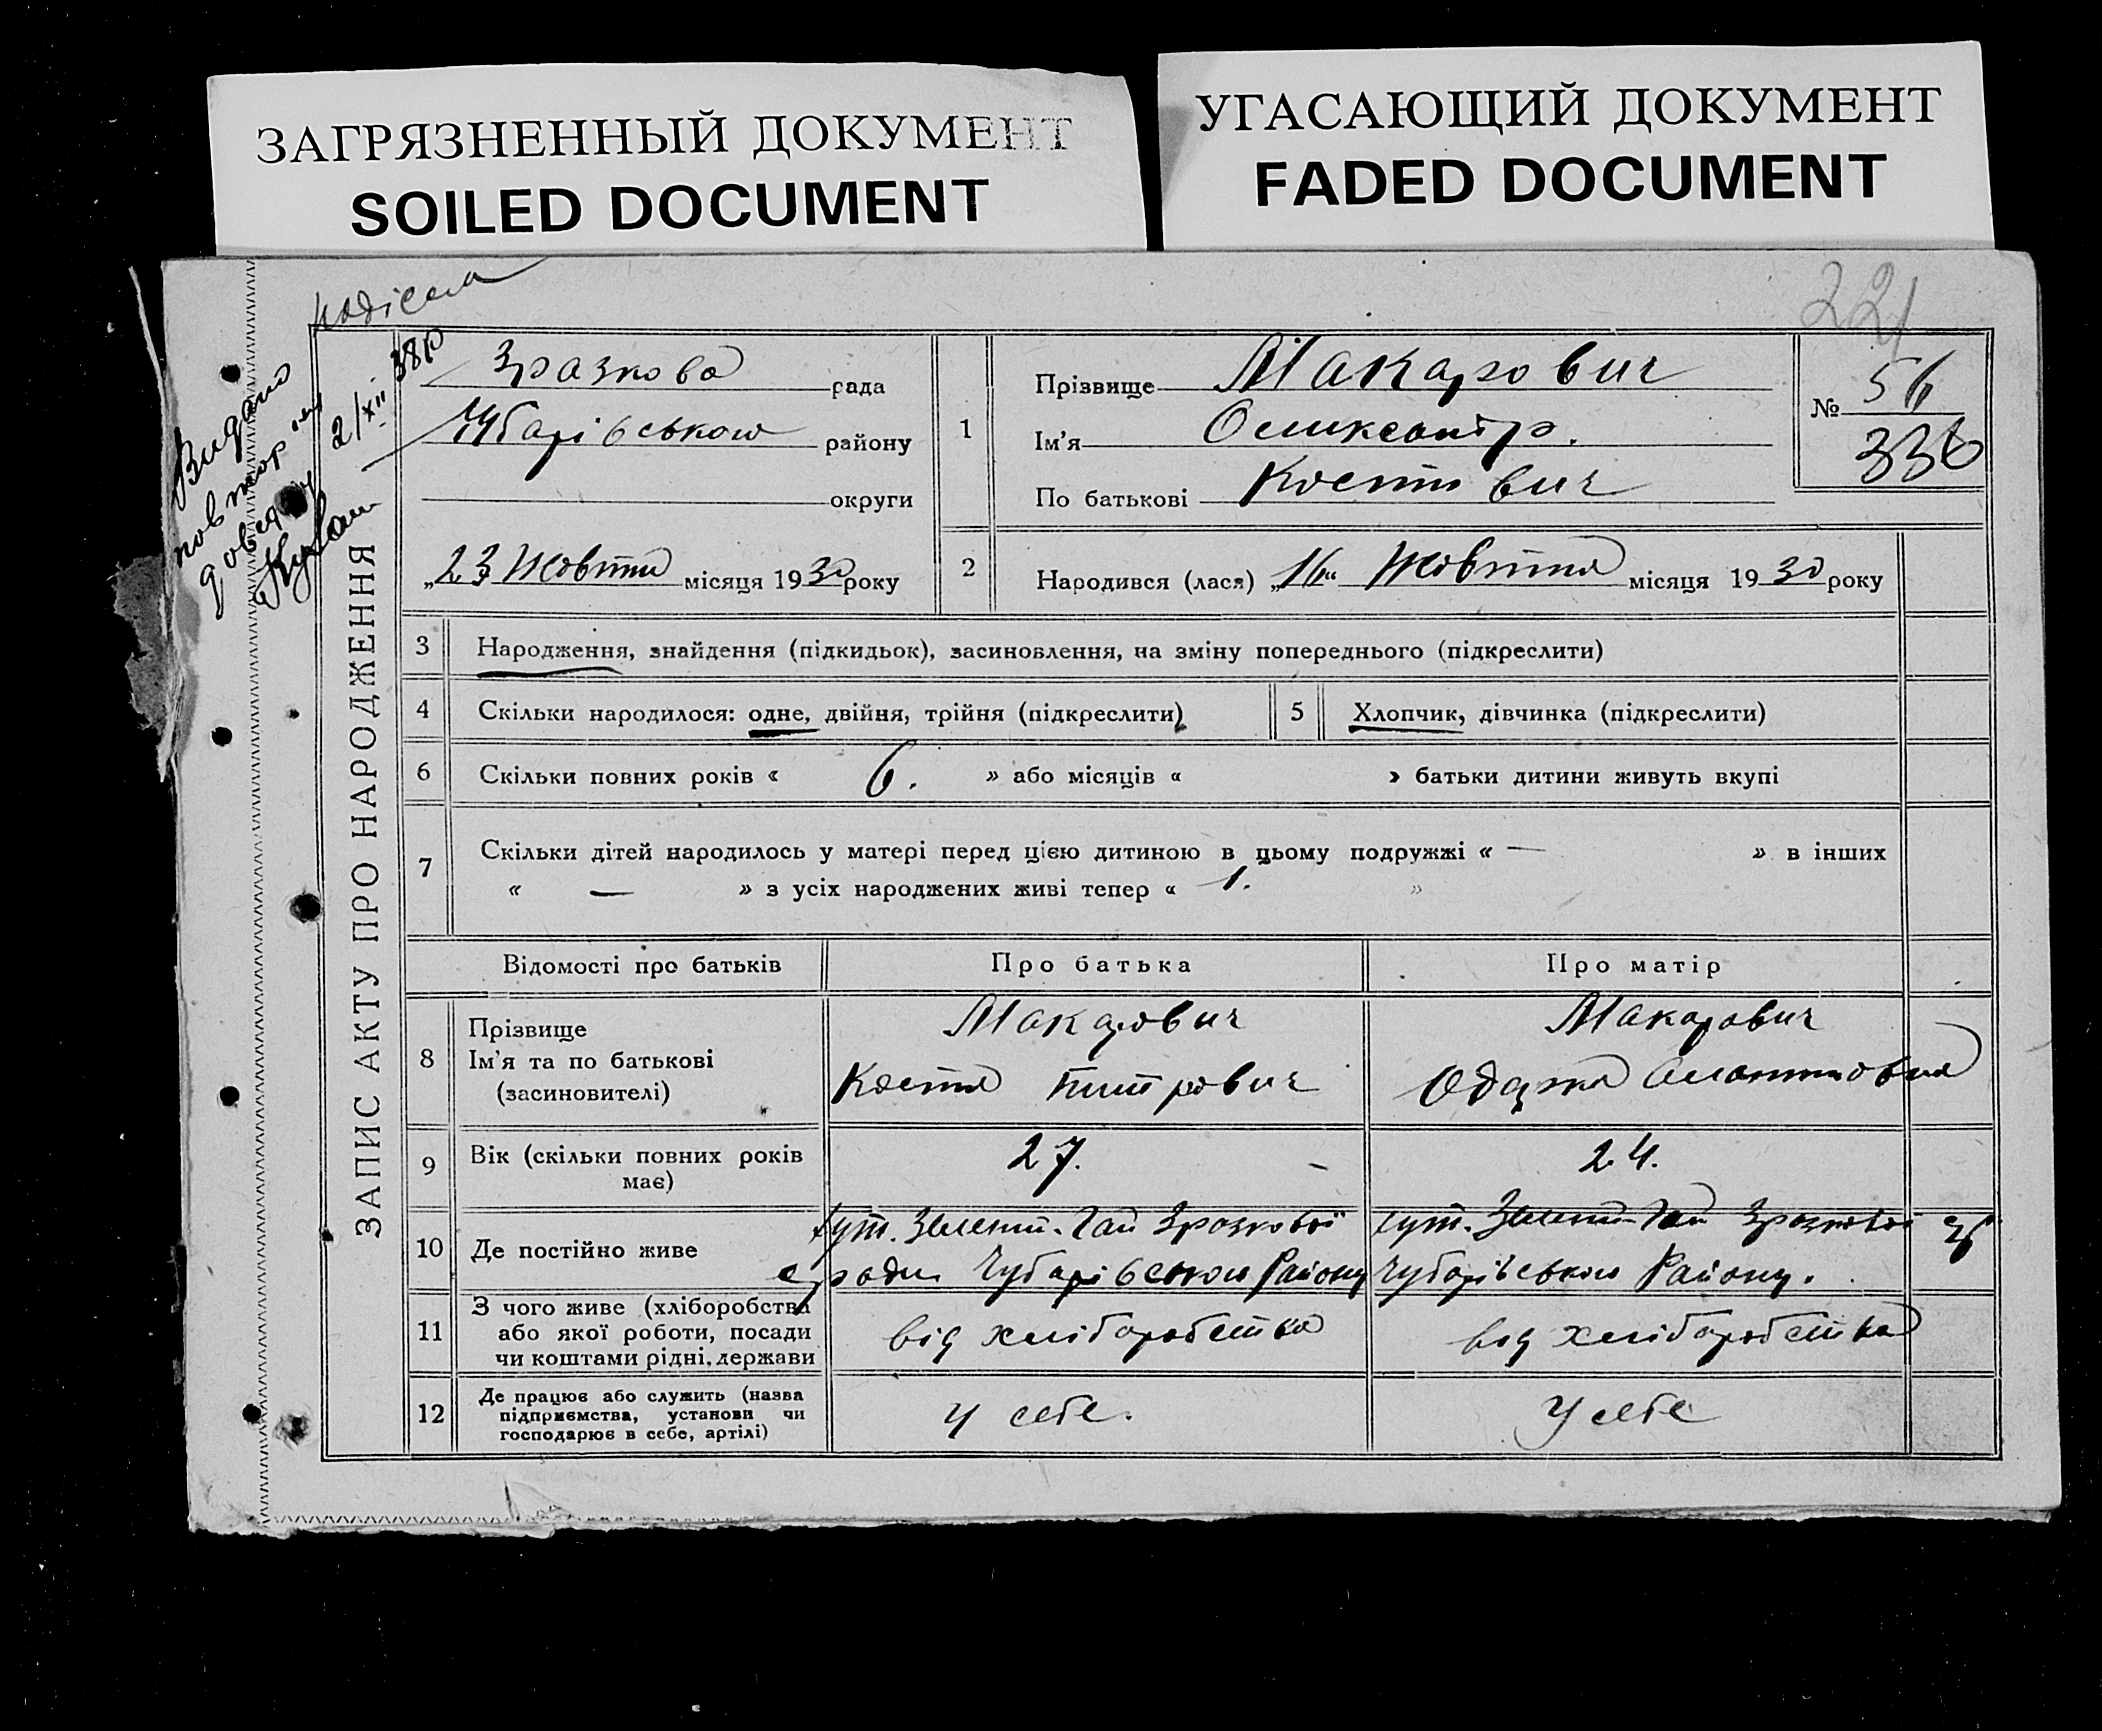 ЗАГРЯЗНЕННЫЙ ДОКУМЕНТ
SOILED DOCUMENT
УГАСАЮЩИЙ ДОКУМЕНТ
FADED DOCUMENT
221
Видано
повтор
2/XII 38 р
ЗАПИС АКТУ ПРО НАРОДЖЕННЯ
Зразкова рада
Чубарівськом району
округи
„23 Жовтня місяця 1930 року
1 Прізвище Макарович
Ім’я Оликсантр.
По батькові Костювич
№ 56
336
2 Народився (лася) „16“ Жовтня місяця 1930 року
3 Народження, знайдення (підкидьок), засиновлення, на зміну попереднього (підкреслити)
4 Скільки народилося: одне, двійня, трійня (підкреслити)
5 Хлопчик, дівчинка (підкреслити)
6 Скільки повних років « 6. » або місяців « » батьки дитини живуть вкупі
7 Скільки дітей народилось у матері перед цією дитиною в цьому подружжі « — » в інших
« — » з усіх народжених живі тепер « 1. »
Відомості про батьків Про батька Про матір
8 Прізвище
Ім’я та по батькові
(засиновителі)
Макарович
Костя Питрович
Макарович
Одаржа
9 Вік (скільки повних років
має)
27.
24.
10 Де постійно живе
хут. Зелений-Гай Зразкової
с/ради Чубарівськом Району
хут. Зелений-Гай Зразкової
Чубарівськом Району.
11 З чого живе (хліборобства
або якої роботи, посади
чи коштами рідні, держави
від хліборобства
від хліборобства
12 Де працює або служить (назва
підприємства, установи чи
господарює в себе, артілі)
у себе.
у себе